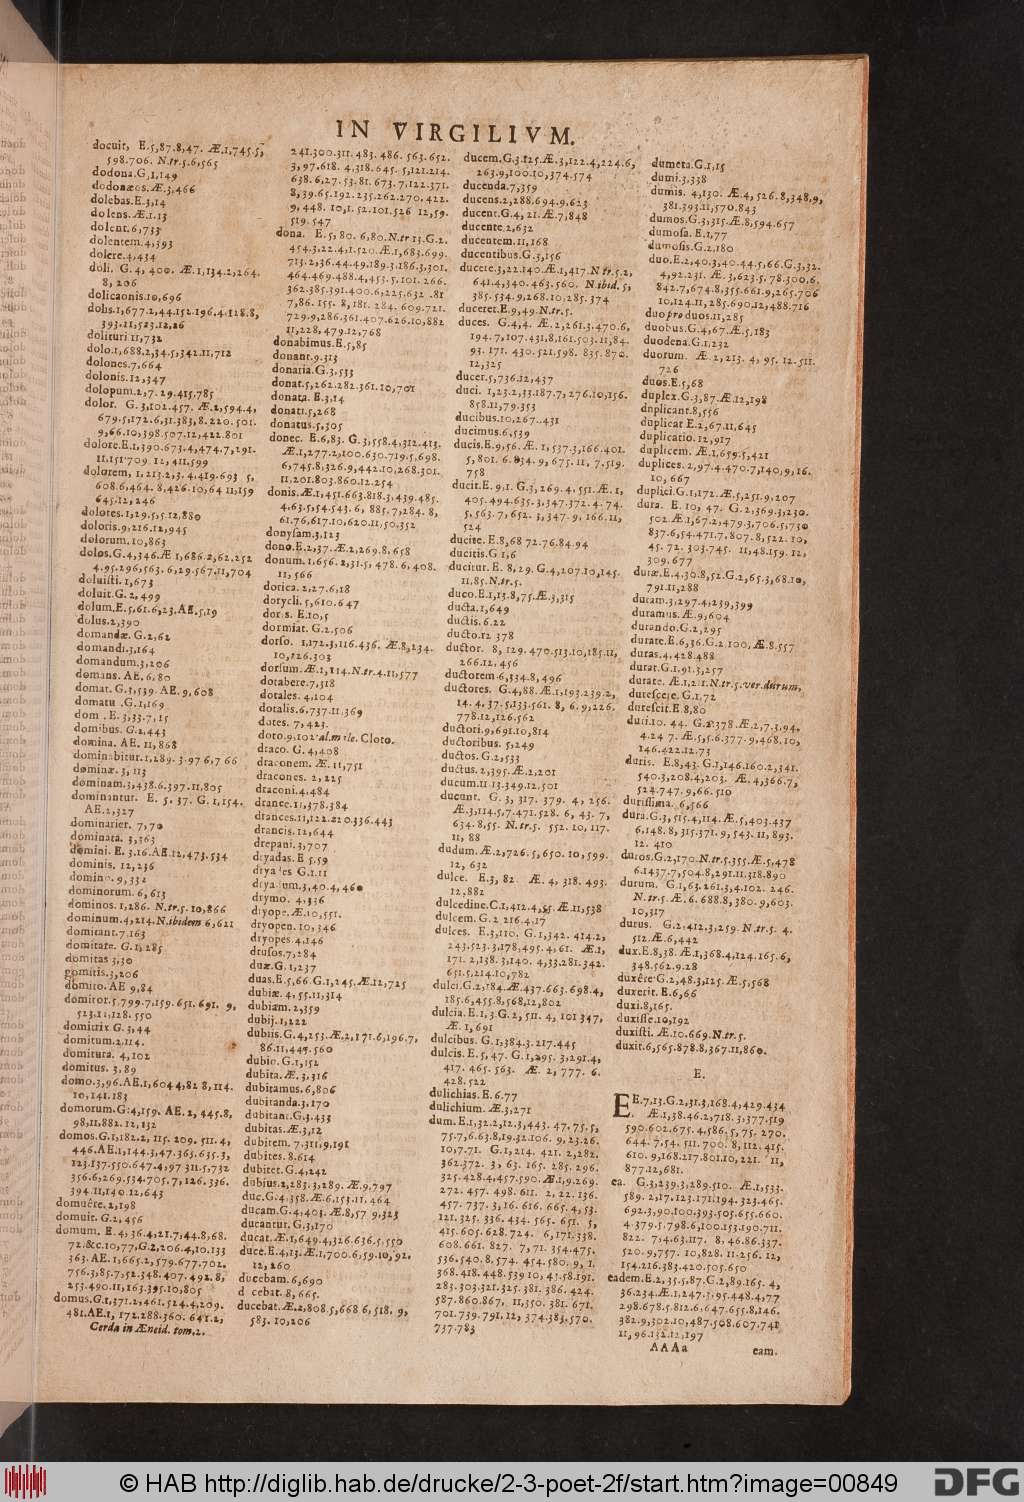 IN VIRGILIVM.
docuit, E.5,87.8,47. Æ.1,745.5,
598.706. N.tr.5.6,565
dodona.G.1,149
dodonæos.Æ.3,466
dolebas.E.3,14
dolens.Æ.1.13
dolent.6,733
dolentem.4,393
dolere.4,434
doli. G.4, 400. Æ.1,134.2,264.
8, 206
dolicaonis.10,696
dolis.1,677.2,44.152.196.4.128.8,
393.11,523.12,26
dolituri 11,732
dolo.1,688.2,34.5,342.11,712
dolones.7,664
dolonis.12,347
dolopum.2,7.29.415.785
dolor. G.3,102.457. Æ.2,594.4,
679.5,172.6,31.383,8.220.501.
9,66.10,398.507.12,422.801
dolore.E.1,390.673.4,474.7,291.
11.151.709 12,411.599
dolorem, 1,213.2,3.4,419.693 5,
608.6,464.8,426.10,64 11,159
645.12,246
dolores.1,29.5,5.12,880
doloris.9,216.12,945
dolorum.10,863
dolos.G.4,346.Æ 1,686.2,62.252
4.95.296,563.6,29.567.11,704
doluisti.1,673
doluit.G.2,499
dolum.E.5,61.6,23.AE.5,19
dolus.2,390
domandæ.G.2,62
domandi.3,164
domandum.3,206
domans. AE.6,80
domat. G.1,539. AE.9,608
domatu .G.1,169
dom . E.3,33.7,15
domibus. G.2,443
domina. AE. 11,868
dominabitur.1,289.3.97 6,7 66
dominæ.3,113
dominam.3,438.6.397.11,805
dominantur. E. 5. 37. G.1,154.
AE.2,327
dominarier. 7,70
dominata. 3,363
domini. E.3.16.AE.12,473.534
dominis. 12,236
domino. 9,332
dominorum.6,613
dominos.1,286. N.tr.5.10,866
dominum.4,214.N.ibidem 6,621
domitant.7,163
domitate. G.1,285
domitas 3,30
domitis.3,206
domito.AE 9,84
domitor.5.799.7,159.651.691. 9,
523.11,128.550
domitrix G.3,44
domitum.2,114.
domitura. 4,102
domitus. 3,89
domo.3,96.AE.1,6044,82 8,114.
10,141.183
domorum.G.4,159. AE.2, 445.8,
98,11,882.12,132
domos.G.1,182.2, 115. 209. 511.4,
446.AE.1,144.3,47.365.635.3,
123.137.550.647.4,97 311.5,732
356.6,269.534.705.7,126.336.
394.11,140.12,643
domuêre.2,198
domuit. G.2,456
domum. E.4,36.4,21.7,44.8,68.
72.&c.10,77,G.2,206.4,10.133
363.AE.1,665.2,579.677.702.
756.3,85.7,52.348.407.492.8,
253.490.11,163.395.10,805
domus.G.1,371.2,461.524.4,209.
481.AE.1,172.288.360.641.2,
Cerda in Æneid. tom.2.
241.300.311.483.486.563.652.
3, 97.618. 4,318.645. 5,121.214.
638.6,27.53.81.673.7,122.371.
8,39.65.192.235.262.270,422.
9, 448. 10,1.52.101.526 12,59.
519.547
dona. E.5, 80. 6,80.N.tr 13.G.2.
454.3,22.4,1.520.Æ.1,683.699.
713.2,36.44.49.189.3.186.3,301.
464.469.488.4,453.5,101.266.
362.385.391.400.6,225.632 .81
7,86. 155. 8,181. 284. 609.721.
729.9,286.361.407.626.10,882
11,228,479.12,768
donabimus.E.5,85
donant.9.313
donaria.G.3,533
donat.5,262.282.361.10,701
donata. E.3,14
donati.5,268
donatus.5,305
donec. E.6,83. G.3,558.4,312.413.
Æ.1,277.2,100.630.719.5,698.
6,745.8,326.9,442.10,268.301.
11,201.803.860.12.254
donis.Æ.1,451.663.818.3,439.485.
4,63.5,54.543.6, 885.7,284.8,
61.76,617.10,620.11,50.352
donysam.3,123
dono.E.2,37.Æ.2,269.8,658
donum.1,656.2,31.5,478.6,408.
11,566
dorica.2,27.6,18
dorycli.5,610.647
doris E.10,5
dormiat.G.2.506
dorso. 1,172.3,116.436. Æ.8,234.
10,226.303
dorsum.Æ.1,114.N.tr.4.11,577
dotabere.7,318
dotales.4,104
dotalis.6,737.11.369
dotes. 7,423.
doto.9.102.al.male. Cloto.
draco. G.4,408
draconem. Æ.11,751
dracones. 2,225
draconi.4.484
drance.11,378.384
drances.11,122.220.336.443
drancis.12,644
drepani.3,707
dryadas.E 5.59
dryades G.1.11
dryadum.3,40.4,460
drymo. 4,336
dryope.Æ.10,551.
dryopen.10,346
dryopes.4,146
drusos.7,284
duæ.G.1,237
duas.E.5,66.G.1,245.Æ.12,725
dubiæ. 4,55.11,314
dubiam.2,359
dubij.1,222
dubiis.G.4,253.Æ.2,171.6,196.7,
86.11,445.560
dubio.G.1,152
dubita.Æ.3,316
dubitamus.6,806
dubitanda.3,170
dubitant.G.3.433
dubitas.Æ.3,12
dubitem. 7,311,9,191
dubites.8.614
dubitet.G.4,242
dubius.2,283.3,289.Æ.9,797
duc.G.4,358.Æ.6,153.11,464
ducam.G.4,403.Æ.8,57 9,323
ducantur.G.3,170
ducat.Æ.1,649.4,326.636.5,550
duce.E.4,13.Æ.1,700.6,59.10,92.
12,260
ducebam.6,690
d cebat.8,665.
ducebat.Æ.2,808.5,668 6,518. 9,
583.10,206
ducem.G.3.125.Æ.3,122.4,224.6,
263.9,100.10,374.574
ducenda.7,359
ducens.2,288.694.9,623
ducent.G.4, 21.Æ.7,848
ducente.2,632
ducentem.11,168
ducentibus.G.3,156
ducere.3,22.140.Æ.1,417.N tr.5.2,
641.4,340.463.560. N.ibid.5,
385.534.9,268.10,285.374
duceret.E.9,49.N.tr.5.
duces. G.4,4. Æ.2,261.3.470.6,
194.7,107.431,8,161.503.11,84.
93. 171. 430.521.598. 835. 870.
12,325
ducet.5,736.12,437
duci. 1,23.2,33.187.7,276.10,156.
858.11,79.353
ducibus.10,267..431
ducimus.6,539
ducis.E.9,56.Æ.1,537.3,166.401.
5, 801. 6.834. 9, 675.11, 7.519.
758
ducit.E.9,1. G.3,269.4,551.Æ.1,
405.494.635.3,347.372.4.74.
5,563.7,652. 3,347.9, 166.11,
524
ducite.E.8,68 72.76.84.94
ducitis.G 1,6
ducitur. E. 8, 29. G.4,207.10,145.
11.85.N.tr.5.
duco.E.1,13.8,75.Æ.3,315
ducta.1,649
ductis.6.22
ducto.12 378
ductor. 8, 129.470.513.10,185.11,
266.12, 456
ductorem 6,334.8,496
ductores. G.4,88.Æ.1,193.239.2,
14. 4, 37.5,133.561. 8, 6. 9,226.
778.12,126.562
ductori.9,691.10,814
ductoribus. 5,249
ductos.G.2,533
ductus.2,395.Æ.2,201
ducum.11.13.349.12.501
ducunt. G.3, 317. 379. 4, 256.
Æ.3,114.5,7.471.528.6, 43.7,
634.8,55. N.tr.5. 552.10,117.
11, 88
dudum.Æ.2,726.5,650.10,599.
12, 632
dulce. E.3, 82 Æ.4, 318. 493.
12,882
dulcedine.C.1,412.4,55.Æ.11,538
dulcem.G.2 216.4.17
dulces. E.3,110. G.1,342.414.2,
243.523.3,178,495.4,61. Æ.1,
171. 2,138.3,140. 4,33.281.342.
651.5,214.10,782
dulci.G.2,184.Æ.437.663.698.4,
185.6,455.8,568,12,802
dulcia.E.1,3.G.2, 511. 4, 101 347,
Æ.1,691
dulcibus.G.1,384.3.217.445
dulcis.E.5,47. G.1,295.3,291.4,
417. 465. 563. Æ.2, 777. 6.
428.522
dulichias.E.6.77
dulichium.Æ.3,271
dum.E.1,32.2,12.3,443. 47.75.5,
75.7,6.63.8,19.32.106. 9,23.26.
10,7.71. G.1,214. 421. 2,282.
362.372. 3, 63. 165. 285. 296.
325.428.4,457.590.Æ.1,9.269.
272. 457. 498. 611. 2, 22. 136.
457. 737. 3,16. 616. 665.4, 53.
121.325. 336. 434. 565. 651. 5,
415.605.628.724. 6,171.338.
608.661. 827. 7, 71. 354.475.
536.540.8,574. 454.580. 9, 1.
368.418.448.539 10, 43.58.191.
283.303.321.325.381.386.424.
587.860.867, 11,350.381.671.
701.739.791.12, 374.383.570.
737.783
dumeta.G.1,15
dumi.3,338
dumis. 4,130. Æ.4, 526.8,348,9,
381.393.11,570.843
dumos.G.3,315.Æ.8,594.657
dumosa. E.1,77
dumosis.G.2,180
duo.E.2,40.3,40.44.5,66.G.3,32.
4,92.231. Æ.3,623.5,78.300.6.
842.7,674.8,355.661.9,265.706
10,124.11,285.690.12,488.716
duo pro duos.11,285
duobus.G.4,67.Æ.5,183
duodena.G.1,232
duorum. Æ.2,213. 4, 95. 12.511.
726
duos.E.5,68
duplex.G.3,87.Æ.12,198
duplicant.8,556
duplicat E.2,67.11,645
duplicatio.12,917
duplicem. Æ.1,659.5,421
duplices.2,97.4,470.7,140,9,16.
10, 667
duplici.G.1,172.Æ.5,251.9,207
dura. E.10, 47. G.2,369.3,230.
502.Æ.1,67.2,479.3,706.5,730
837.6,54.471.7,807.8,522.10,
45. 72. 303.745. 11,48.159.12,
309.677
duræ.E.4,30.8,52.G.2,65.3,68.10,
791.11,288
duram.3,297.4,239,399
duramus.Æ.9,604
durando.G.2,295
durate.E.6,36.G.2 100, Æ.8.557
duras.4,428.488
durat.G.1,91.3,257
durate. Æ.1,211.N.tr.5.ver.durum,
durescere.G.1,72
durescit.E.8,80
duri.10. 44. G.2,378.Æ.2,7.3,94.
4,24 7. Æ.5,5.6.377.9,468.10,
146.422.12.73
duris. E.8,43. G.1,146.160.2,341.
540.3,208.4,203. Æ.4,366.7,
524.747.9,66.510
durissima. 6,566
duro.G.3,515.4,114.Æ.5,403.437
6,148.8,315.371.9,543.11,893.
12. 410
duros.G.2,170.N.tr.5.355.Æ.5,478
6.1437.7,504.8,291.11.318.890
durum. G.1,63.261.3,4.102. 246.
N.tr.5.Æ.6.688.8,380.9,603.
10,317
durus. G.2,412.3,259. N.tr.5. 4.
512.Æ.6,442
dux.E.8,38.Æ.1,368.4,124.165.6,
348.562.9.28
duxêre G.2,48.3,125.Æ.5,568
duxerit. E.6,66
duxi.8,165.
duxisse.10,192
duxisti. Æ.10.669.N.tr.5.
duxit.6,565.878.8,367.11,860.
E.
E E.7,13.G.2,31.3,168.4,429.434
. Æ.1,38.46.2,718.3,377.519
590.602.675.4,586.5,75. 270.
644. 7,54. 511.700. 8,112. 415.
610. 9,168.217.801.10,221. 11,
877.12,681.
ea. G.3,239.3,289.510. Æ.1,533.
589.2,17.123.171.194.323.465.
692.3,90.100.393.505.655.660.
4.379.5.798.6,100.153.190.711.
822. 7,4.63.117. 8,46.86.337.
520.9,757. 10,828.11.256.12,
154.216.383.420.505.650
eadem.E.2,35.5,87.G.2,89.165.4,
36.234.Æ.1,247.3,95.448.4,77
298.678.5,812.6,647.655.8,146.
382.9,302.10,487.508.607.741
11, 96.132.12,197
AAAa
eam.
© HAB http://diglib.hab.de/drucke/2-3-poet-2f/start.htm?image=00849
DFG